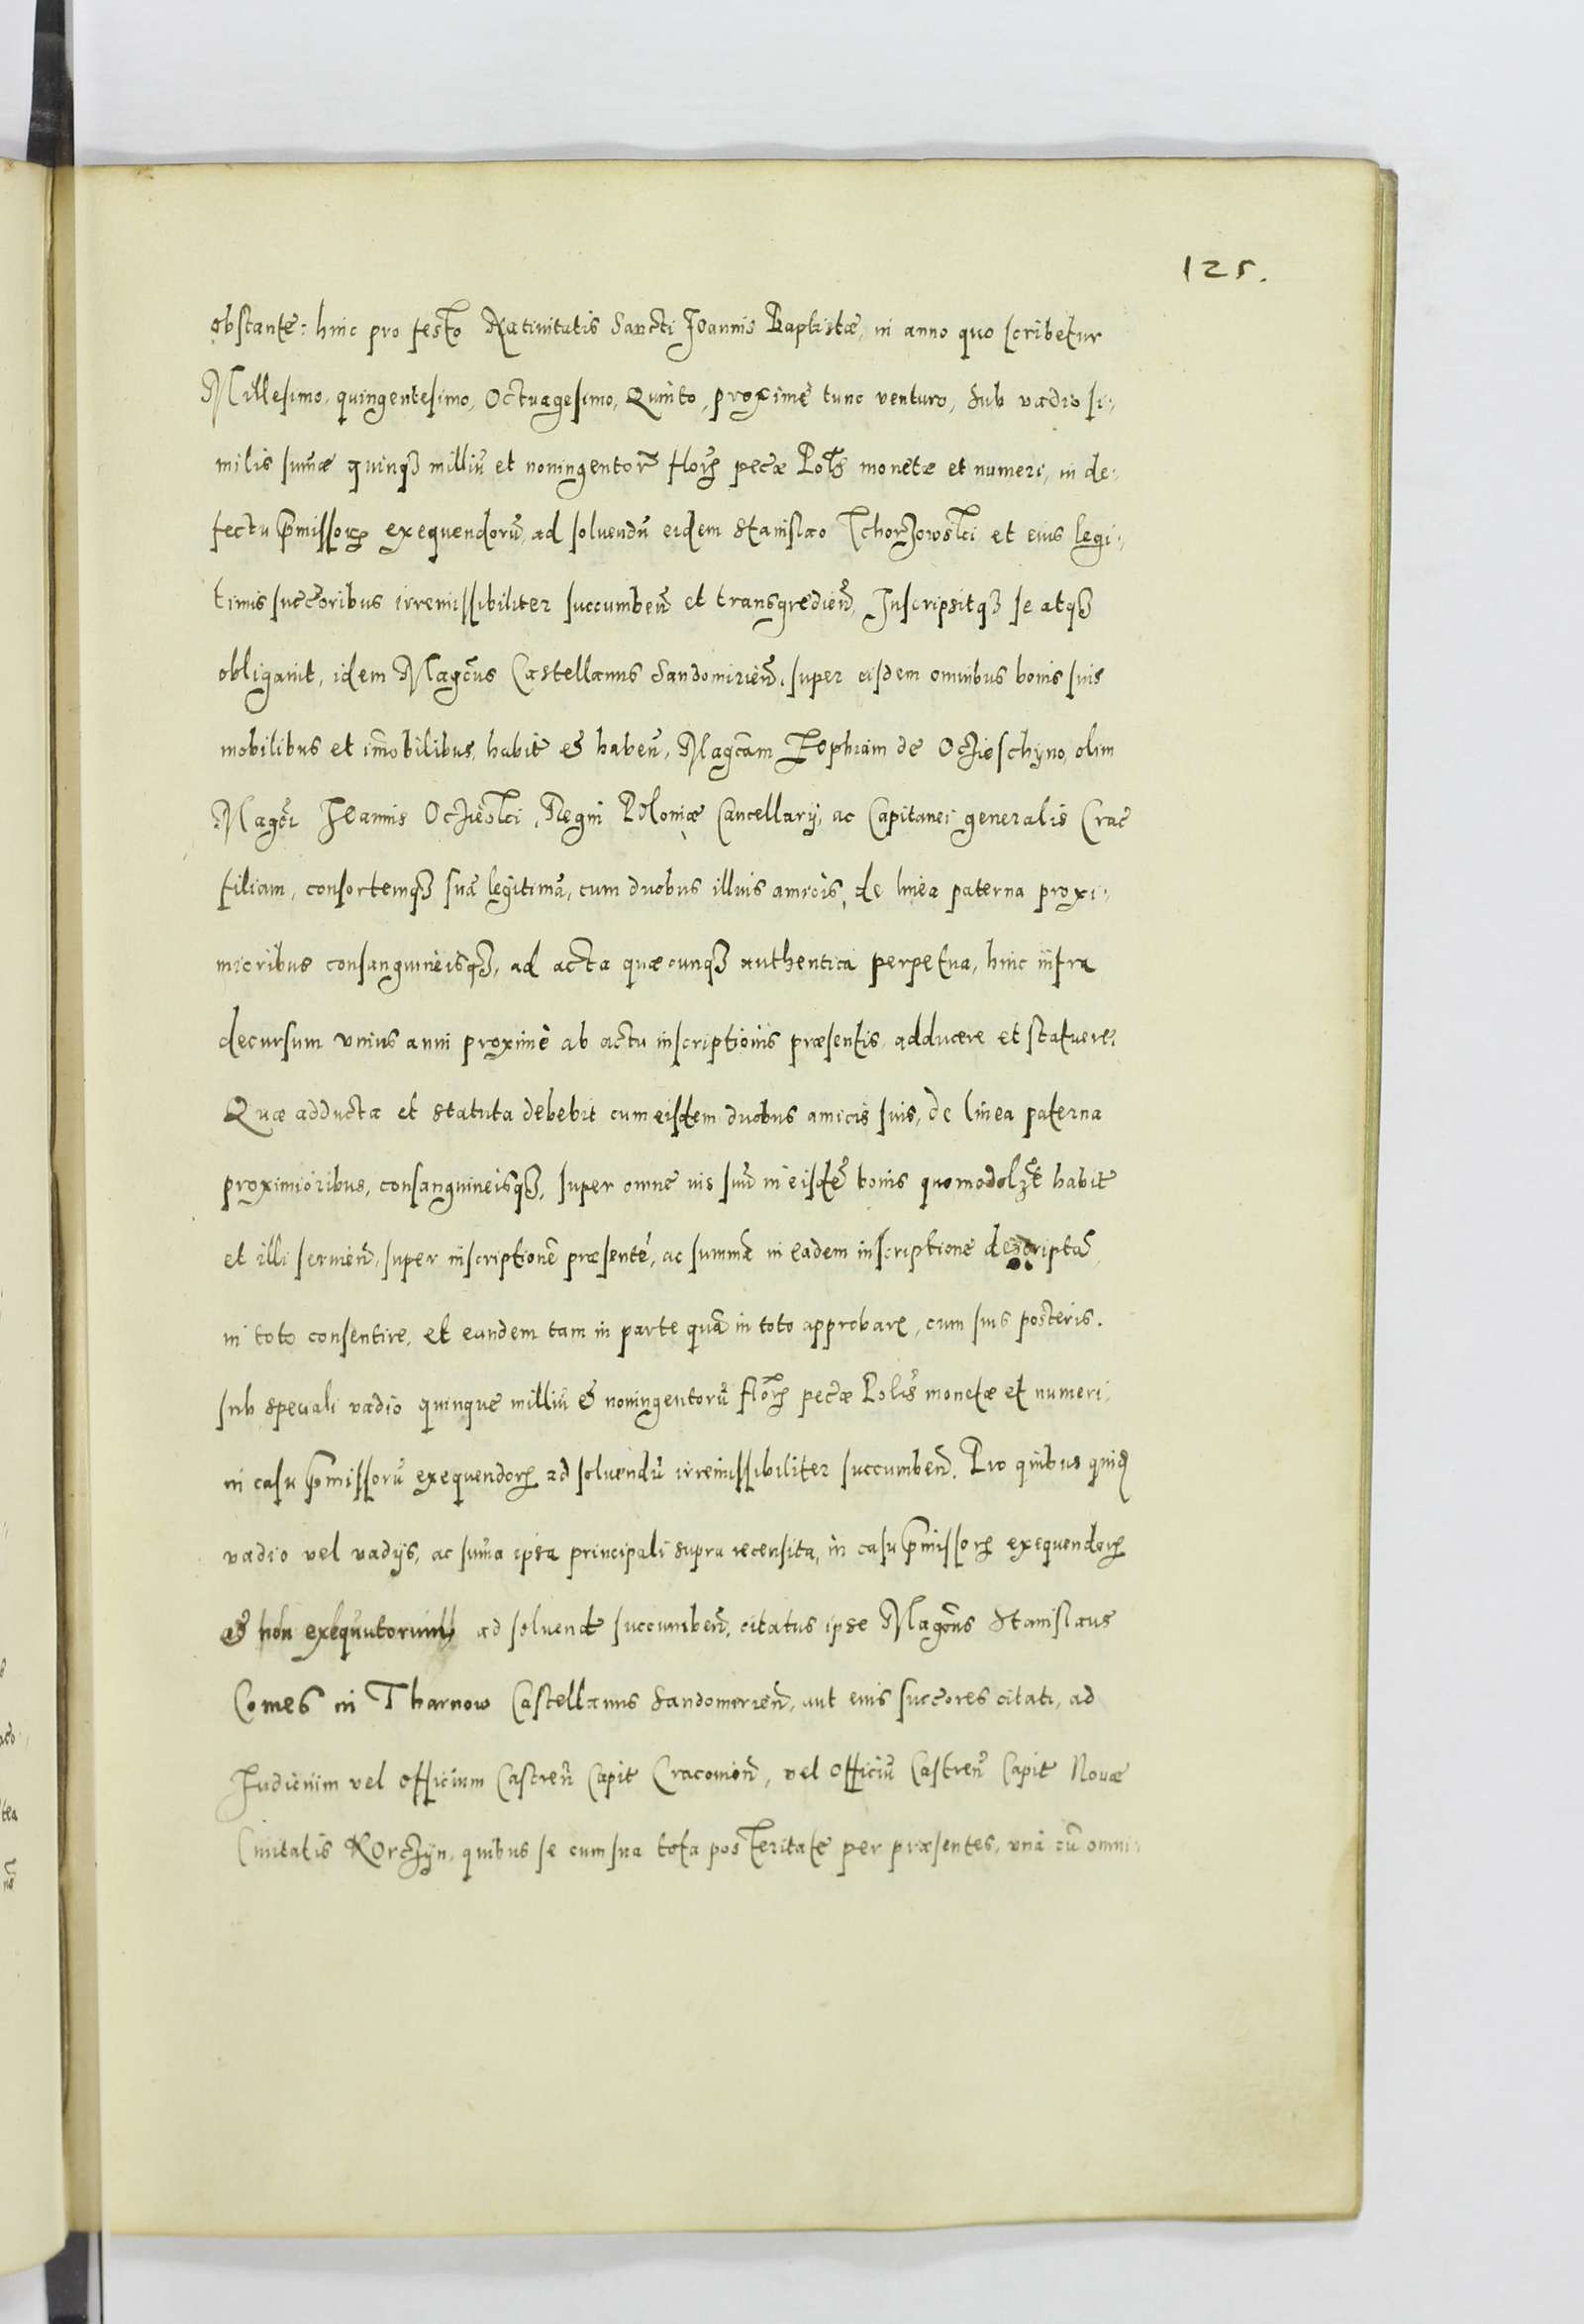 125.
obstante: hinc pro festo Natiuitatis Sancti Joannis Baptistæ, in anno quo scribetur
Millesimo, quingentesimo, Octuagesimo, Quinto, proximè tunc venturo, sub vadio si-
milis sum̃æ quinqȝ milliũ et noningentor̃ floꝝ pecæ Polꝭ monetæ et numeri, in de-
fectu p̃missoꝝ exequendorũ, ad soluendũ eidem Stanislao Tchorzowski et eius legi-
timis succ̃oribus irremissibiliter succumben̄ et transgredien̄, Inscripsitqȝ se atqȝ
obligauit, idem Magc̃us Castellanus Sandomirien̄, super eisdem omnibus bonis suis
mobilibus et im̃obilibus, habit̃ & haben̄, Magc̃am Zophiam de Oczieschyno, olim
Magc̃i Joannis Oczieski, Regni Poloniæ Cancellarij, ac Capitanei generalis Crac̃
filiam, consortemqȝ suã legitimã, cum duobus illius amicis, de linea paterna proxi-
mioribus consanguineisqȝ, ad acta quæcunqȝ authentica perpetua, hinc infra
decursum vnius anni proximè ab actu inscriptionis præsentis adducere et statuere.
Quæ adducta et statuta debebit cum eisdem duobus amicis suis, de linea paterna
proximioribus, consanguineisqȝ, super omne ius suũ in eisdẽ bonis quomodolȝt habit̃
et illi seruien̄, super inscriptionẽ præsentẽ, ac summã in eadem inscriptione descriptã,
in toto consentire, et eandem tam in parte quã in toto approbare, cum suis posteris.
sub speciali vadio quinque milliũ & noningentorũ floꝝ pecæ Polꝭ monetæ et numeri,
in casu p̃missorũ exequendoꝝ ad soluendũ irremissibiliter succumben̄. Pro quibus quidẽ
vadio vel vadijs, ac sum̃a ipsa principali supra recensita, in casu p̃missoꝝ exequendoꝝ
& non exequutorum ad soluend̃ succumben̄, citatus ipse Magc̃us Stanislaus
Comes in Tharnow Castellanus Sandomirien̄, aut eius succ̃ores citati, ad
Judicium vel officium Castren̄ Capit̃ Cracouien̄, vel officiũ Castren̄ Capit̃ Nouæ
Ciuitatis Korczyn, quibus se cum sua tota posteritate per præsentes, vnà cũ omni-